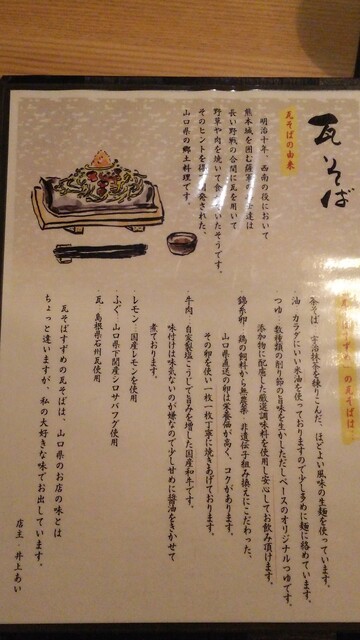 瓦そば
瓦そばの由来
明治十年、西南の役において
熊本城を囲む薩軍の兵士達は
長い野戦の合間に瓦を用いて
野草や肉を焼いて食べていたそうです。
そのヒントを得て開発された、
山口県の郷土料理です。
の瓦そばは、
茶そば 宇治抹茶を練りこんだ、ほどよい風味の生麺を使っています。
油 カラダにいい米油を使っておりますので少し多めに麺に絡めています。
つゆ 数種類の削り節の旨味を生かしただしベースのオリジナルつゆです。
添加物に配慮した厳選調味料を使用し安心してお飲み頂けます。
錦糸卵 鶏の飼料から無農薬、非遺伝子組み換えにこだわった、
山口県直送の卵は栄養価が高く、コクがあります。
その卵を使い一枚一枚丁寧に焼きあげております。
牛肉 自家製塩こうじで旨みを増した国産和牛です。
味付けは味気ないのが嫌なので少し甘めに醤油をきかせて
煮ております。
レモン 国産レモンを使用
ふぐ 山口県下関産シロサバフグ使用
瓦 島根県石州瓦使用
瓦そばすずめの瓦そばは、山口県のお店の味とは
ちょっと違いますが、私の大好きな味でお出しています。
店主 井上あい